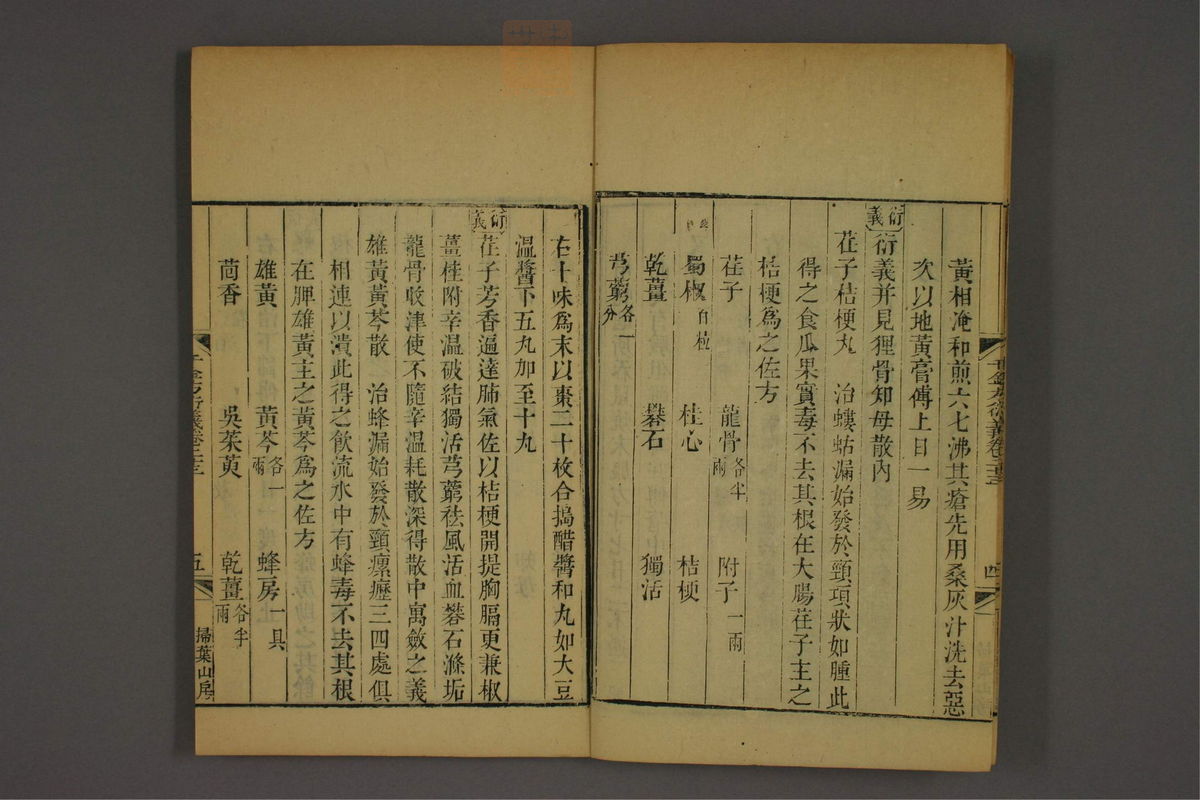 黃相淹和煎六七沸其瘡先用桑灰汁洗去惡
次以地黃膏傅上日一易
衍義
衍義并見狸骨知母散內
荏子桔梗丸 治螻蛄漏始發於頸項狀如腫此
得之食瓜果實毒不去其根在大腸荏子主之
桔梗為之佐方
荏子 龍骨各半兩 附子一兩
蜀椒百粒 桂心 桔梗
乾薑 礬石 獨活
芎藭各一分
四
右十味為末以棗二十枚合搗醋醬和丸如大豆
溫醬下五丸加至十丸
衍義
荏子芳香遍達肺氣佐以桔梗開提胸膈更兼椒
薑桂附辛溫破結獨活芎藭祛風活血礬石滌垢
龍骨收津使不隨辛溫耗散深得散中寓斂之義
雄黃黃芩散 治蜂漏始發於頸瘰癧三四處俱
相連以潰此得之飲流水中有蜂毒不去其根
在脾雄黃主之黃芩為之佐方
雄黃 黃芩各一兩 蜂房一具
茴香 吳茱萸 乾薑各半兩
五
掃葉山房